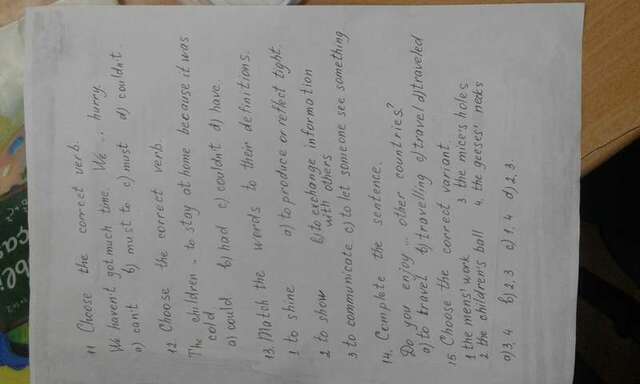 11 Choose the correct verb.
We haven't got much time. We ... hurry.
a) can't b) must to c) must d) couldn't.
12 Choose the correct verb.
The children .. to stay at home because it was
cold
a) could b) had c) couldn't d) have.
13. Match the words to their definitions.
1 to shine a) to produce or reflect light.
2 to show b) to exchange information
with others
3 to communicate c) to let someone see something
14. Complete the sentence.
Do you enjoy ... other countries?
a) to travel b) travelling c) travel d) traveled
15 Choose the correct variant.
1 the mens' work 3 the mice's holes
2 the children's ball 4. the geeses' necks
a) 3, 4 b) 2, 3 c) 1, 4 d) 2, 3